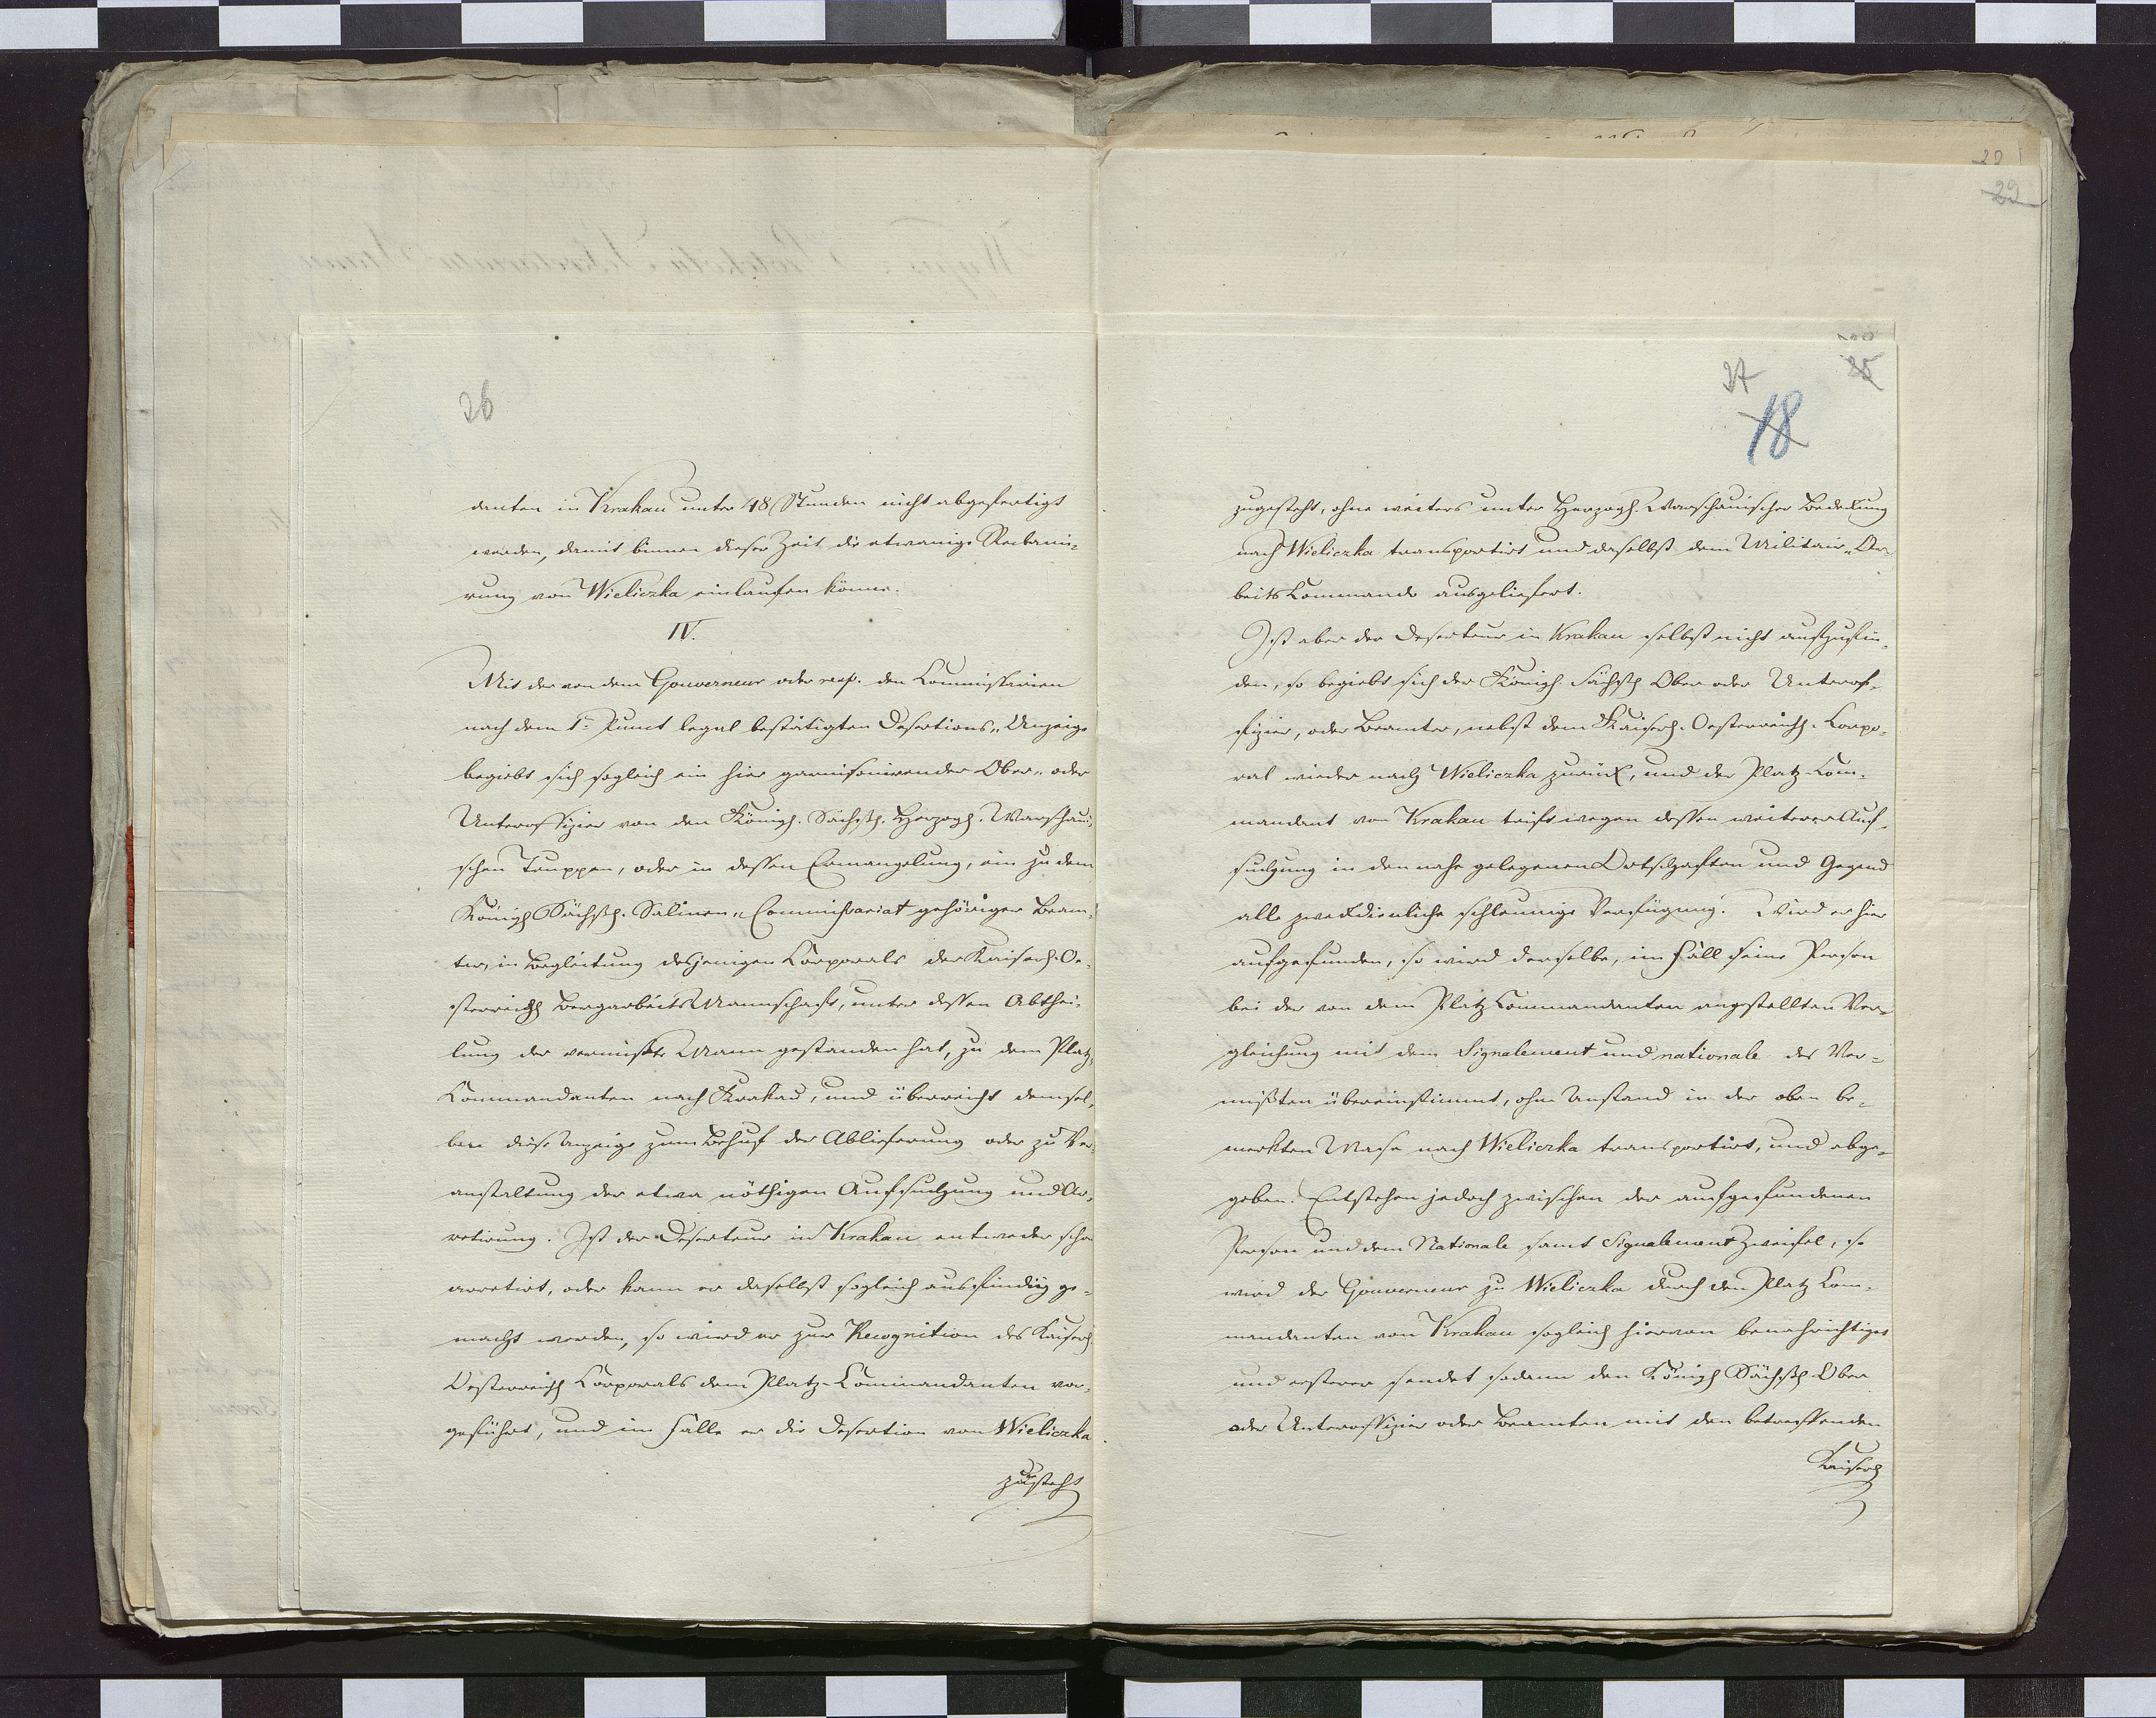 26
danten in Krakau unter 48 Stunden nicht abgefertigt
werden, damit binnen dieser Zeit die etwanige Reclami-
rung von Wieliczka einlaufen könne.
IV.
Mit der von dem Gouverneur oder resp. den Commissarien
nach dem 1n Punct legal bestätigten Desertions-Anzeige
begiebt sich sogleich ein hier garnisonirender Ober- oder
Unteroffizier von den Königl. Sächsch. Herzogl. Warschaui-
schen Truppen, oder in dessen Ermangelung, ein zu dem
Königl Sächsch. Salinen-Commissariat gehöriger Beam-
ter, in Begleitung desjenigen Corporals der Kaiserl. Oe-
sterreichl BergarbeitsMannschaft, unter dessen Abthei-
lung der vermißte Mann gestanden hat, zu dem Platz-
Commandanten nach Krakau, und überreicht demsel-
ben diese Anzeige zum Behuf der Ablieferung oder zu Ver-
anstaltung der etwa nöthigen Aufsuchung und Ar-
retirung. Ist der Deserteur in Krakau entweder schon
arretirt, oder kann er daselbst sogleich ausfindig ge-
macht werden, so wird er zur Recognition des Kaiserl
Oesterreichl Corporals dem Platz-Commandanten vor-
geführt, und im Falle er die Desertion von Wieliczka
zugesteht
22
29
25
27
18
zugesteht, ohne weiters unter Herzogl. Warschauischer Bedekung
nach Wieliczka transportirt und daselbst dem Militair-Ar-
beits Commando ausgeliefert.
Ist aber der Deserteur in Krakau selbst nicht aufzufin-
den, so begiebt sich der Königl. Sächsch Ober oder Unterof-
fizier, oder Beamter, nebst dem Kaiserl. Oesterreichl. Corpo-
ral wieder nach Wieliczka zurück, und der Platz-Com-
mandant von Krakau trift wegen dessen weiterer Auf-
suchung in den nahe gelegenen Ortschaften und Gegend
alle zweckdienliche schleunige Verfügung. Wird er hier
aufgefunden, so wird derselbe, im Fall seine Person
bei der von dem Platz Commandanten angestellten Ver-
gleichung mit dem Signalement und nationale des Ver-
mißten übereinstimmt, ohne Anstand in der oben be-
merkten Maße nach Wieliczka transportirt, und abge-
geben. Entstehen jedoch zwischen der aufgefundenen
Person und dem Nationale samt Signalement Zweifel, so
wird der Gouverneur zu Wieliczka durch den Platz Com-
mandanten von Krakau sogleich hiervon benachrichtiget
und ersterer sendet sodann den Königl Sächsch Ober
oder Unteroffizier oder Beamten mit den betreffenden
Kaiserl